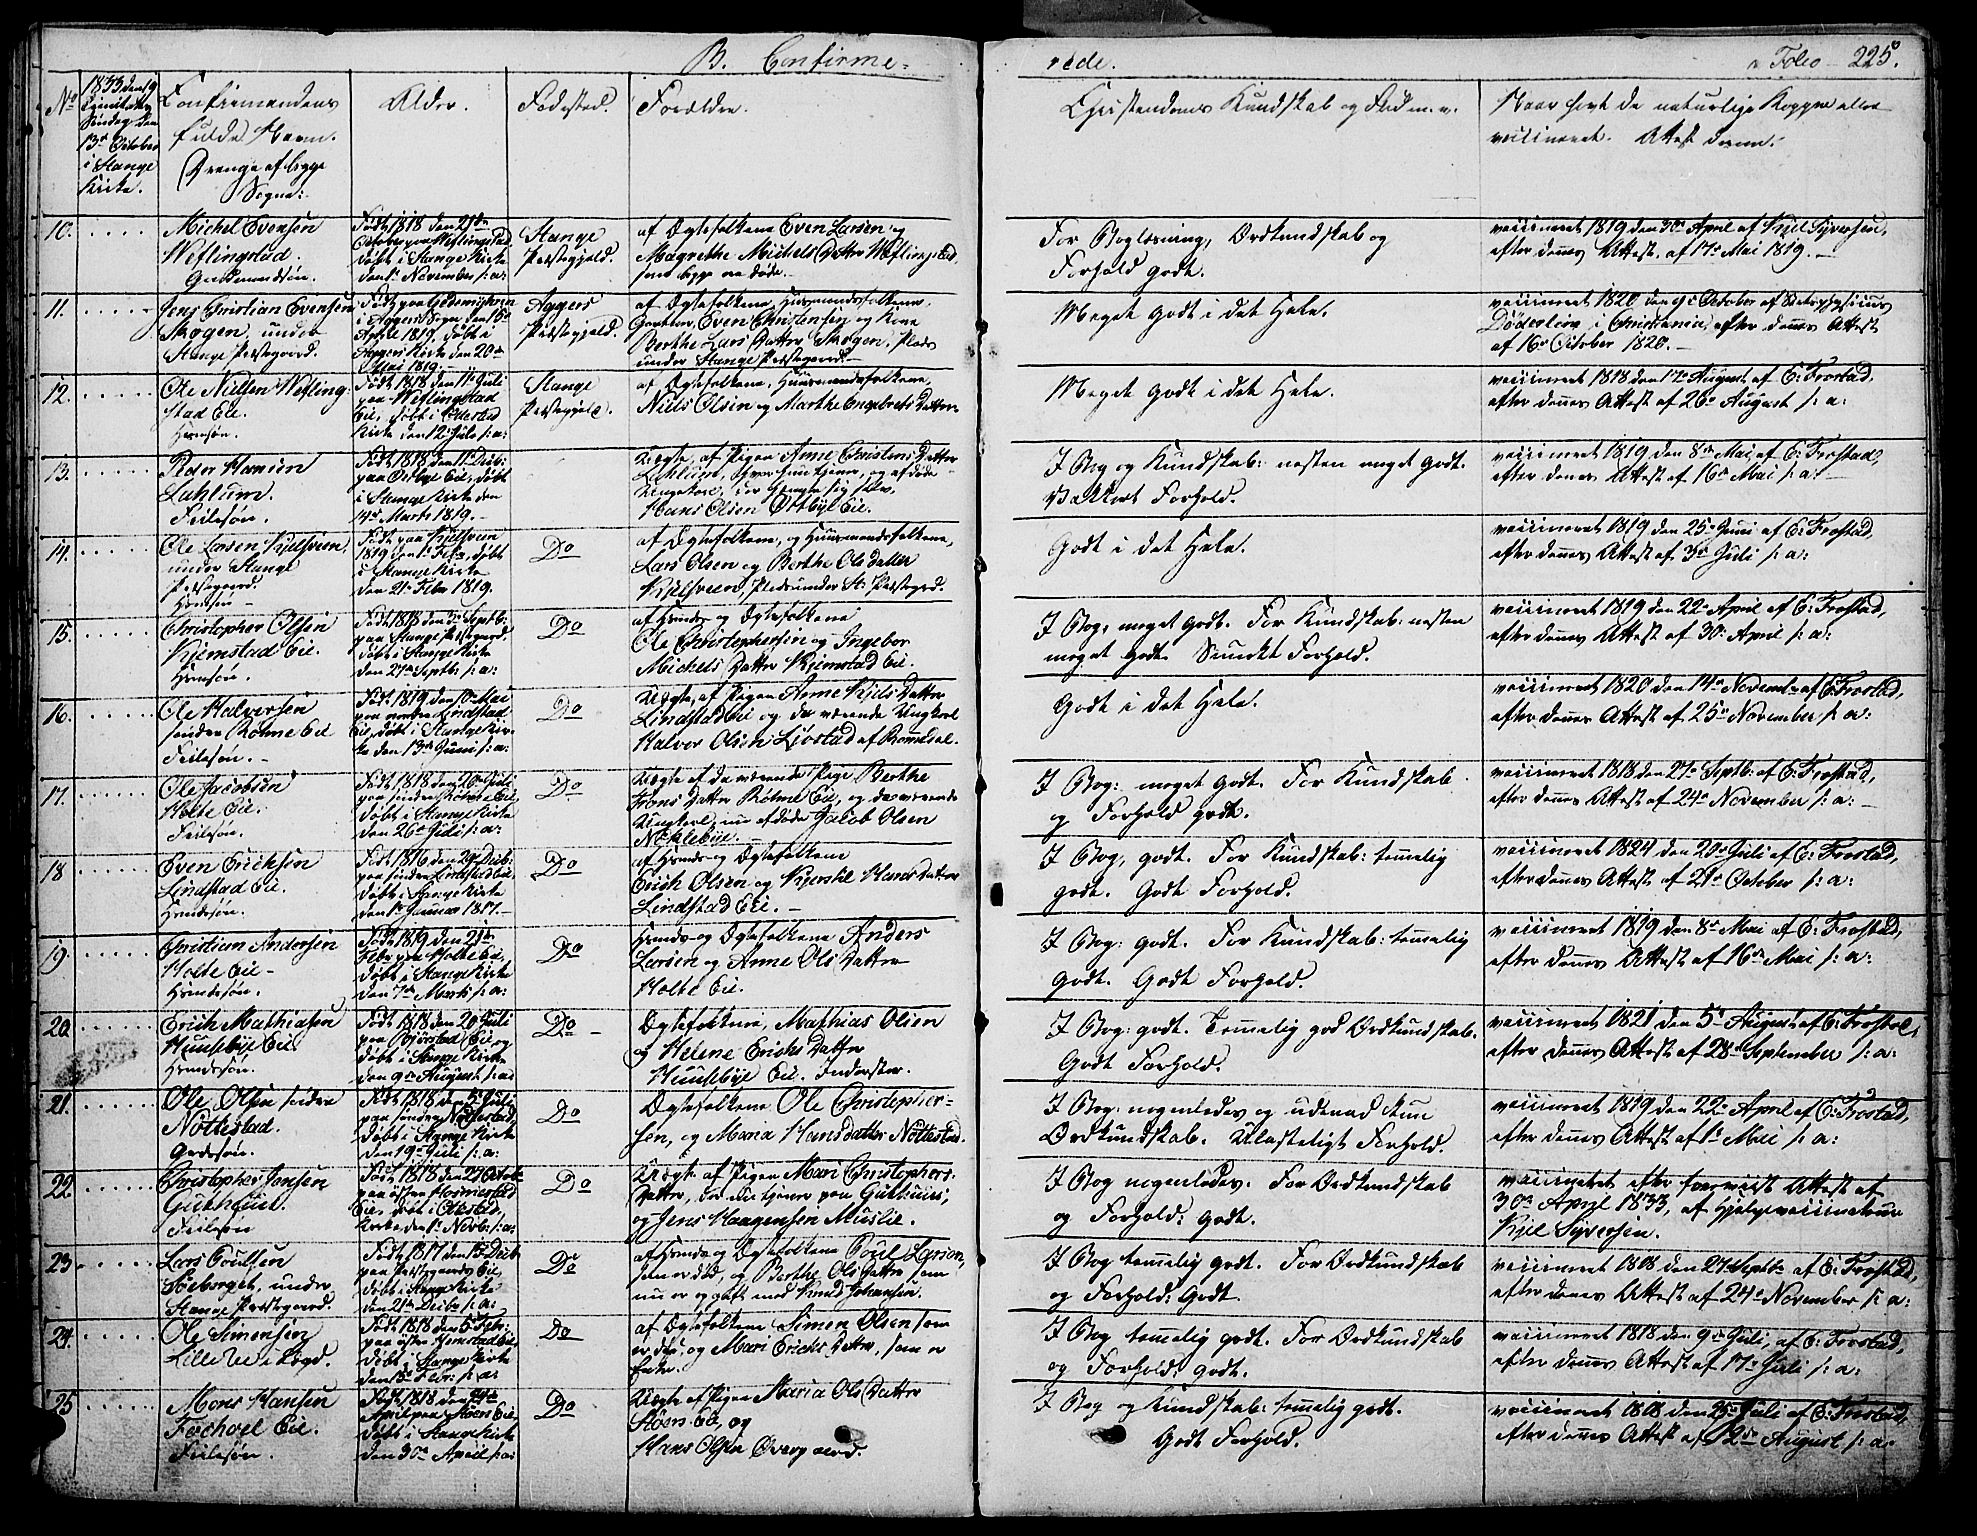 B. Confirme-
rede.
Folio 225.
No
1833 den 19
Søndag den
13de October
i Stange
Kirke.
Confirmandens
fulde Navn.
Drenge af begge
Sogne:
Alder.
Fødested.
Forældre.
Christendoms Kundskab og Flid m. v.
Naar havt de naturlige Kopper eller
vaccineret. Attest derom.
10.
Michel Evensen
Weflingstad.
Født 1818 den 21de
October paa Weflingstad,
døbt i Stange Kirke
den 1ste November s: a:
Stange
Præstegjeld.
af Ægtefolkene Even Larsen og
Magrethe Michels Datter Weflingstad,
som begge ere døde.
For Boglæsning, Ordkundskab og
Forhold godt.
vaccineret 1819 den 30te April af Kiel Syversen,
efter dennes Attest af 17de Mai 1819.
11.
Jens Christian Evensen
Skogen, under
Stange Præstegaard.
i Aggers Sogn den 16de
April 1819, døbt i
Aggers Kirke den 20de
Mai 1819.
Aggers
Præstegjeld.
af Ægtefolkene, Huusmandsfolkene,
Even Christensen og Kone
Berthe Lars Datter Skogen, Plads
under Stange Præstegaard.
Meget Godt i det Hele.
vaccineret 1820 den 9de October af
Døderlein i Christiania, efter dennes Attest
af 16de October 1820.
12.
Ole Nielsen Wefling-
stad Eie.
Født 1818 den 11te Juli
paa Weflingstad
Eie, døbt i Ottestad
Kirke den 12te Juli s: a:
Stange
Præstegjeld.
af Ægtefolkene, Huusmandsfolkene,
Niels Olsen og Marthe Engebrets Datter
Meget Godt i det Hele.
vaccineret 1818 den 17de August af E: Frostad,
efter dennes Attest af 26de August s: a:
13.
Peder Hansen
Lahlum.
Født 1818 den 11te Decb:
paa Ostbye Eie, døbt
i Stange Kirke den
14de Marts 1819.
Uægte, af Pigen Anne Christens Datter
Lahlum,
Hans Olsen Ostbye Eie.
I Bog og Kundskab: nesten meget Godt.
Forhold.
vaccineret 1819 den 8de Mai af E: Frostad,
efter dennes Attest af 16de Mai s: a:
14.
Ole Larsen Kjelsveen,
under Stange
Præstegaard.
Født paa Kjelsveen
1819 den 1ste Febr, døbt
i Stange Kirke
den 21de Febr 1819.
Do
af Ægtefolkene, og Huusmandsfolkene,
Lars Olsen og Berthe Ols Datter
Kjelsveen, Plads under St: Præstegrd.
Godt i det Hele.
vaccineret 1819 den 25de Juni af E: Frostad,
efter dennes Attest af 3de Juli s: a:
15.
Christopher Olsen
Kjemstad Eie.
Født 1818 den 3de Septb:
paa Stange Præstegaard,
døbt i Stange Kirke
den 27de Septb: s: a:
Do
Ole Christophersen og Ingebor
Michels Datter Kjemstad Eie.
I Bog: meget Godt. For Kundskab: nesten
meget Godt. Forhold.
vaccineret 1819 den 22de April af E: Frostad,
efter dennes Attest af 30te April s: a:
16.
Ole Halvorsen
søndre Røhne Eie
Født 1819 den 10de Mai
paa nordre Lindstad
Eie, døbt i Stange Kir-
ke den 13de Juni s: a:
Do
Uægte, af Pigen Anne Kjels Datter
Lindstad Eie og da værende Ungkarl
Halvor Olsen Liøstad af Romedal.
Godt i det Hele.
vaccineret 1820 den 14de November af E: Frostad,
efter dennes Attest af 25de November s: a:
17.
Ole Jacobsen
Holte Eie.
Født 1818 den 20de Juli
paa søndre Røhne Eie,
døbt i Stange Kirke
den 26de Juli s: a:
Do
Uægte af da værende Pige Berthe
Frans Datter Røhne Eie, og da værende
Ungkarl, nu afdøde Jacob Olsen
Nøkleblye.
I Bog: meget Godt. For Kundskab
og Forhold godt.
vaccineret 1818 den 27de Septb: af E: Frostad,
efter dennes Attest af 24de November s: a:
18.
Even Erichsen
Lindstad Eie.
Født 1816 den 29de Decb:
paa søndre Lindstad Eie
døbt i Stange Kirke
den 1ste Januar 1817.
Do
Erich Olsen og Kjersti Hans Datter
Lindstad Eie.
I Bog, godt. For Kundskab: temmelig
godt. Godt Forhold.
vaccineret 1824 den 20de Juli af E: Frostad,
efter dennes Attest af 21de October s: a:
19.
Christian Andersen
Holte Eie
Født 1819 den 21de
Febr paa Holte Eie,
døbt i Stange Kirke
den 7de Marts s: a:
Do
Huusmands- og Ægtefolkene Anders
Larsen og Anne Ols Datter
Holte Eie.
I Bog: godt. For Kundskab: temmelig
Godt. Godt Forhold.
vaccineret 1819 den 8de Mai af E: Frostad,
efter dennes Attest af 16de Mai s: a:
20.
Erich Mathiasen
Huusebye Eie.
Født 1818 den 20de Juli
paa Bjørstad Eie og
døbt i Stange Kirke
den 9de August s: a:
Do
Ægtefolkene, Mathias Olsen
og Helene Erichs Datter
Huusebye Eie. Inderster.
I Bog: godt. Temmelig god Ordkundskab.
Godt Forhold.
vaccineret 1821 den 5te August af E: Frostad,
efter dennes Attest af 28de September s: a:
21.
Ole Olsen søndre
Nøttestad.
Født 1818 den 5te Juli
paa søndre Nøttestad,
døbt i Stange Kirke
den 19de Juli s: a:
Do
Ægtefolkene Ole Christopher-
sen, og Maria Hansdatter Nøttestad.
I Bog: nogenledes og udenad kun
Ordkundskab. Ulasteligt Forhold.
vaccineret 1819 den 22de April af E: Frostad,
efter dennes Attest af 1ste Mai s: a:
22.
Christopher Jensen
Guthuus.
Født 1818 den 27 Octob:
Eie, døbt i Ottestad
Kirke den 1ste Novb: s: a:
Do
Uægte af Pigen Mari Christophers
Datter, der nu tjener paa Guthuus,
og Jens Haagensen Muslie.
I Bog nogenledes. For Ordkundskab
og Forhold: godt.
vaccineret efter foreviist Attest af
30te April 1833, af Hjelpevaccinateur
Kjel Syversen.
23.
Lars Poulsen
Søeberget, under
Stange Præstegaard.
Født 1817 den 15de Decb:
paa Præstegaards Eie,
døbt i Stange Kirke
den 21de Decbr s: a:
Do
af Huusmands- og Ægtefolkene Poul Larsen,
som er død, og Berthe Ols Datter, som
nu er og gift med Knud Johansen.
I Bog temmelig godt. For Ordkundskab
og Forhold: Godt.
vaccineret 1818 den 27de Septbr. af E: Frostad,
efter dennes Attest af 24de November s: a:
24.
Ole Simensen
Lille
Født 1818 den 5te Febr:
døbt i Stange Kirke
den 15de Febr: s: a:
Do
af Ægtefolkene Simen Olsen som
er død, og Mari Erichs Datter, som er
Enke.
I Bog temmelig godt. For Ordkundskab
og Forhold: godt.
vaccineret 1818 den 9de Juli, af E: Frostad,
efter dennes Attest af 17de Juli s: a:
25
Mons Hansen
Fachoel Eie.
Født 1818 den 24de
April paa Hoens Eie,
døbt i Stange Kirke
den 30te April s: a:
Do
Uægte af Pigen Maria Ols Datter
Hoens Eie, og
Hans Olsen Overgaard.
I Bog og Kundskab: temmelig godt.
Godt Forhold.
vaccineret 1818 den 25de Juli af E: Frostad,
efter dennes Attest af 2de August s: a: